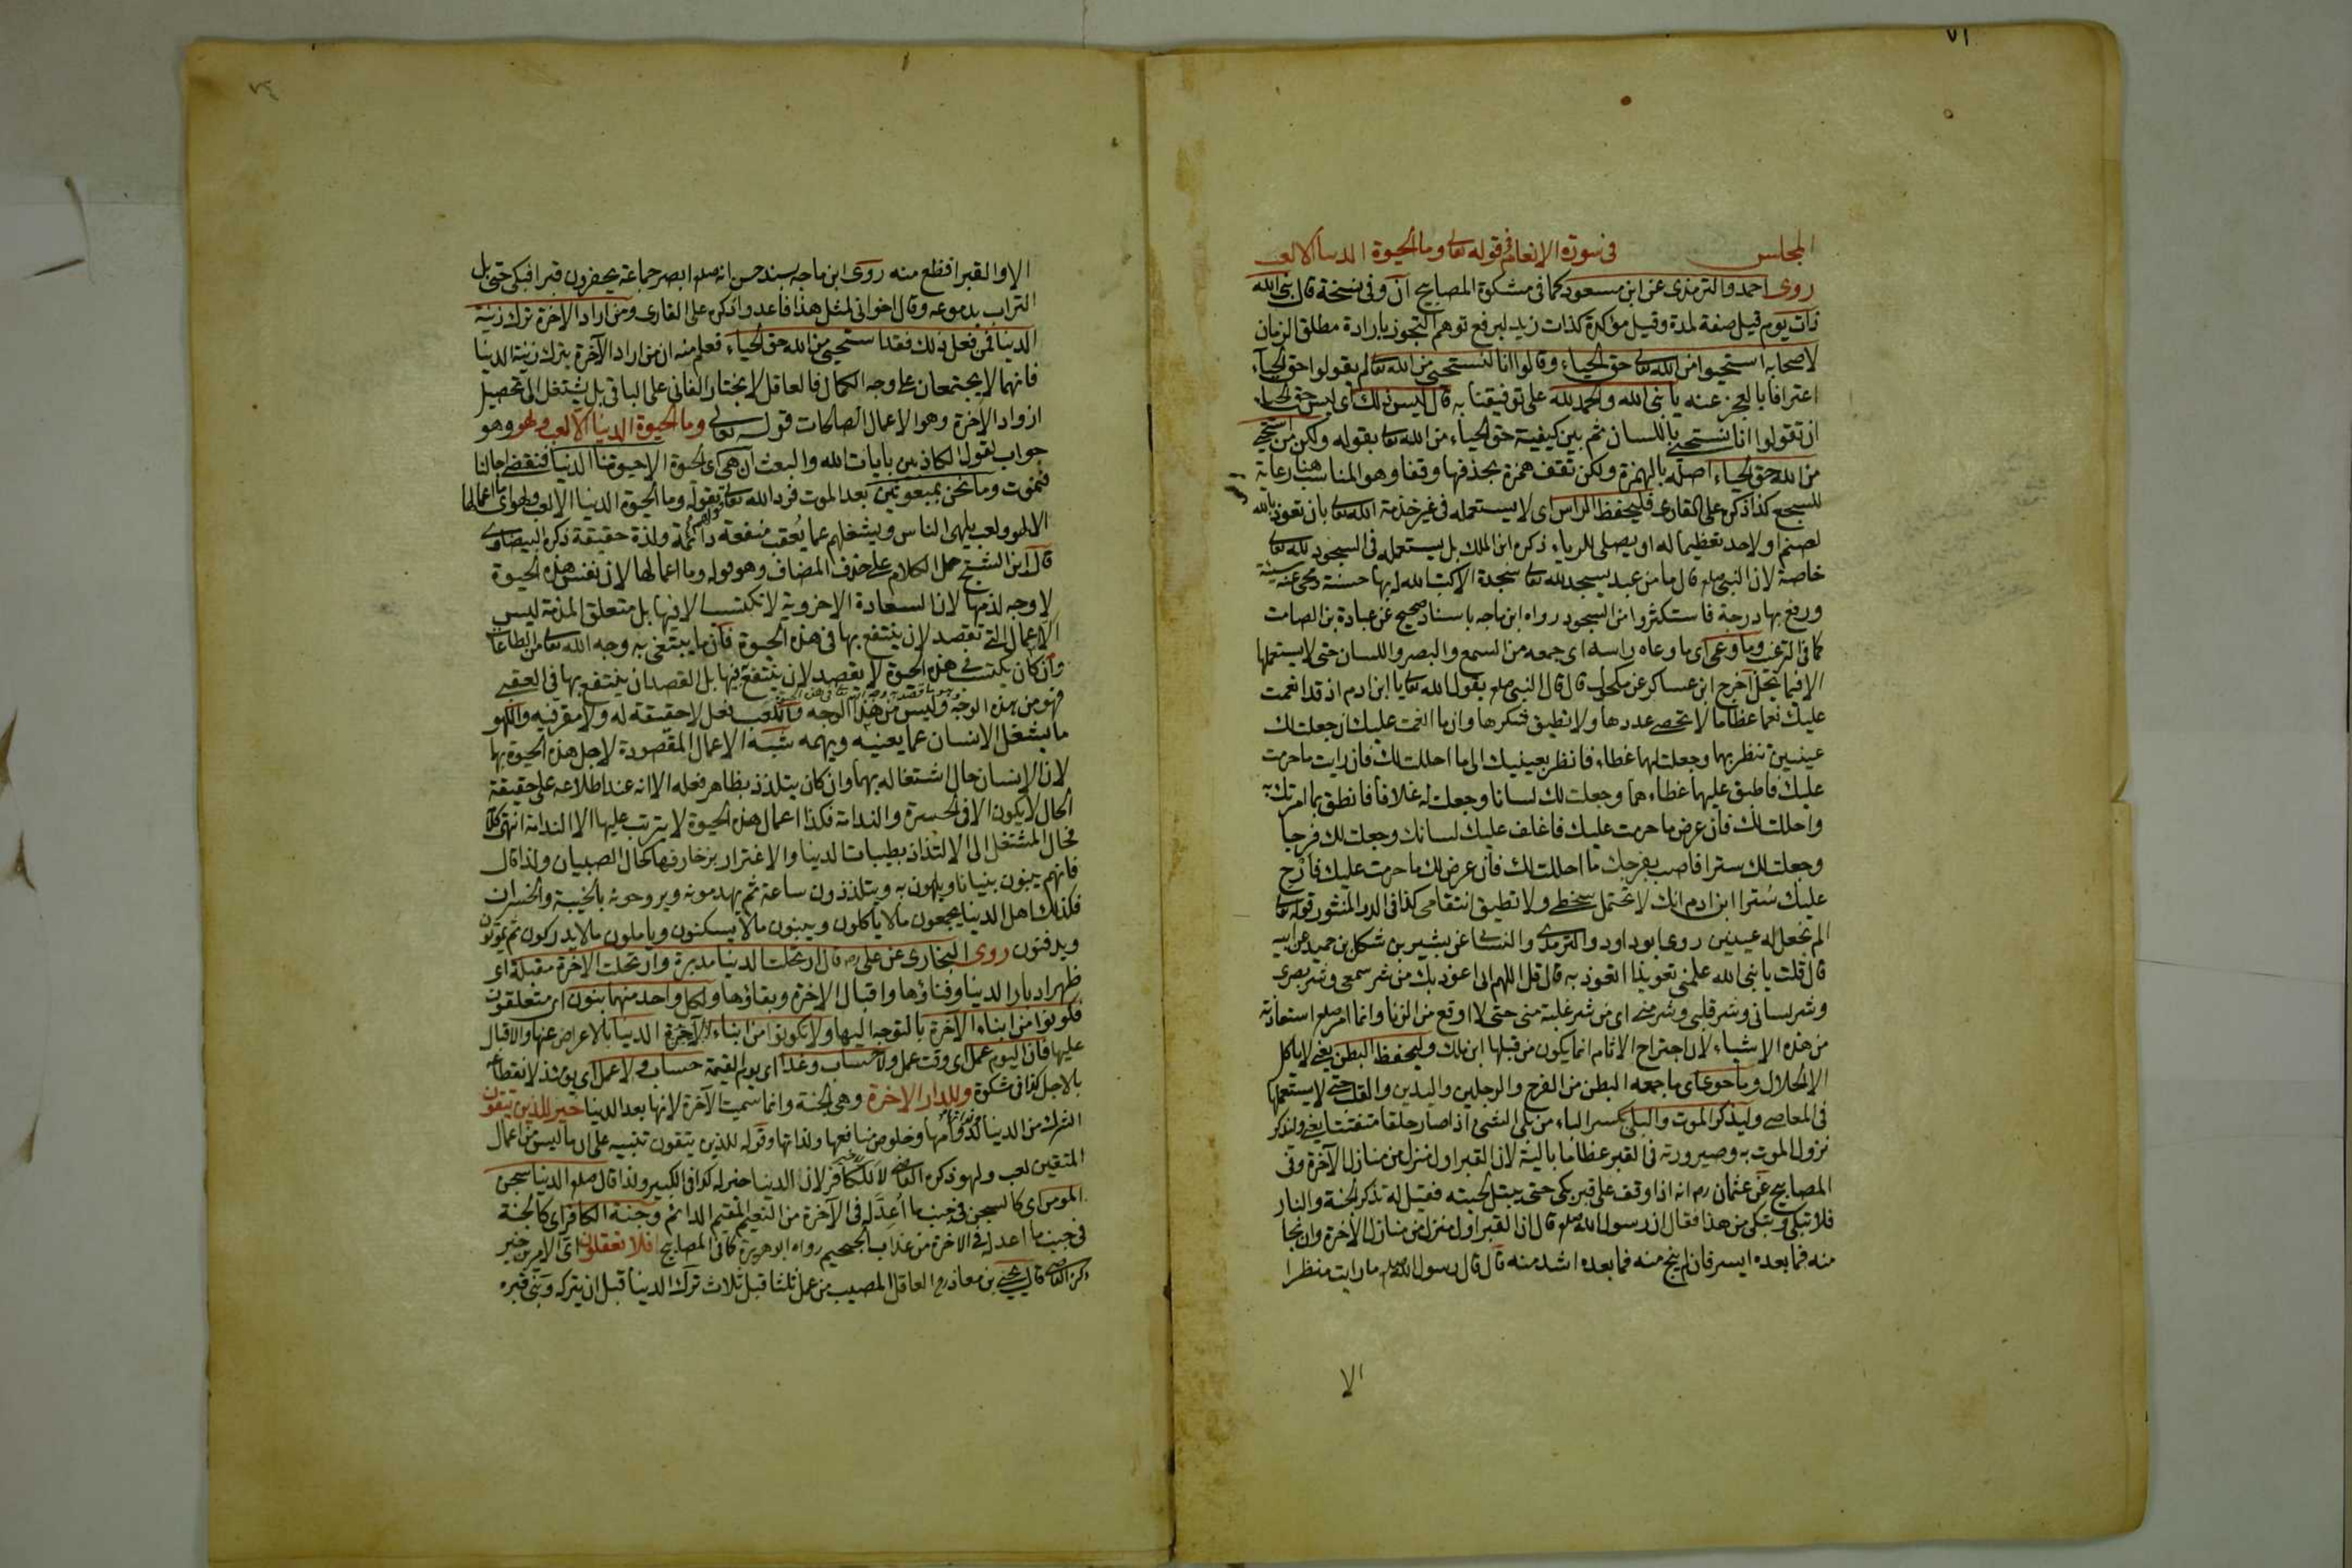 ٧١
المجلس في سورة الانعام في قوله تعالى وما الحيوة الدنيا الا لعب
روى احمد والترمذى عن ابن مسعود كما فى مشكوة المصابيح ان وفى نسخة قال نبى الله
ذات يوم قيل صفة لمدة وقيل مؤكدة كذات زيد لرفع توهم التجوز بارادة مطلق الزمان
لاصحابه استحيوا من الله تعالى حق الحياء وقالوا انا لنستحيى من الله تعالى لم يقولوا حق الحياء
اعترافا بالعجز عنه يا نبى الله والحمد لله على توفيقنا به قال ليس ذلك اى ليس حق الحياء
ان تقولوا انا نستحيى باللسان ثم بين كيفية حق الحياء من الله تعالى بقوله ولكن من استحيى
من الله حق الحياء اصله بالهمزة ولكن تقف همزة بحذفها وقفا وهو المناسب هنا رعاية
للسجع كذا ذكره على القارى فليحفظ الراس اى لا يستعمله فى غير خدمة الله تعالى بان نعوذ بالله
لصنم او لاحد تعظيما له او يصلى للرياء ذكره ابن الملك بل يستعمله فى السجود لله تعالى
خاصة لان النبى صلعم قال ما من عبد يسجد لله تعالى سجدة الا كتب الله له بها حسنة ومحى عنه سيئة
ورفع بها درجة فاستكثروا من السجود رواه ابن ماجه باسناد صحيح عن عبادة بن الصامت
كما فى الترغيب وما وعى اى ما وعاه راسه اى جمعه من السمع والبصر واللسان حتى لا يستعملها
الا فيما يحل اخرج ابن عساكر عن مكحول قال قال النبى صلعم يقول الله تعالى يا ابن ادم اذ قد انعمت
عليك نعما عظاما لا تحصى عددها ولا تطيق شكرها وان ما انعمت عليك ان جعلت لك
عينين تنظر بهما وجعلت لهما غطاء فانظر بعينيك الى ما احللت لك فان رايت ما حرمت
عليك فاطبق عليهما غطاءهما وجعلت لك لسانا وجعلت له غلافا فانطق بما امرتك به
واحللت لك فان عرض ما حرمت عليك فاغلف عليك لسانك وجعلت لك فرجا
وجعلت لك سترا فاصب بفرجك ما احللت لك فان عرض لك ما حرمت عليك فارخ
عليك سترا ابن ادم انك لا تحتمل سخطى ولا تطيق انتقامى كذا فى الدر المنثور قوله تعالى
الم نجعل له عينين روى ابو داود والترمذى والنسائى عن بشير بن شكل بن حميد عن ابيه
قال قلت يا نبى الله علمنى تعويذا اتعوذ به قال قل اللهم انى اعوذ بك من شر سمعى وشر بصرى
وشر لسانى وشر قلبى وشر منى اى من شر غلبة منى حتى لا اوقع من الزنا وانما امر صلعم استعاذته
من هذه الاشياء لان اجتراح الاثام انما يكون من قبلها ابن ملك وليحفظ البطن يعنى لا ياكل
الا الحلال وما حوى اى ما جمعه البطن من الفرج والرجلين واليدين والقلب حتى لا يستعملها
فى المعاصى وليذكر الموت والبلى بكسر الباء من بلى الشئ اذا صار خلقا متفتتا يعنى وليذكر
نزول الموت به وصيرورته فى القبر عظاما بالية لان القبر اول منزل من منازل الآخرة وفى
المصابيح عن عثمان رض انه اذا وقف على قبر بكى حتى يبتل لحيته فقيل له تذكر الجنة والنار
فلا تبكى وتبكى من هذا فقال ان رسول الله صلعم قال ان القبر اول منزل من منازل الآخرة وان نجا
منه فما بعده ايسر فان لم ينج منه فما بعده اشد منه قال قال رسول الله صلعم ما رايت منظرا
الا
الا والقبر افظع منه روى ابن ماجه بسند حسن انه صلعم ابصر جماعة يحفرون قبرا فبكى حتى بل
التراب بدموعه وقال اخوانى لمثل هذا فاعدوا ذكره على القارى ومن اراد الاخرة ترك زينة
الدنيا فمن فعل ذلك فقد استحيى من الله حق الحياء فعلم منه ان من اراد الآخرة يترك زينة الدنيا
فانهما لا يجتمعان على وجه الكمال فالعاقل لا يختار الفانى على الباقى بل يشتغل الى تحصيل
ازواد الآخرة وهو الاعمال الصالحات قوله تعالى وما الحيوة الدنيا الا لعب ولهو وهو
جواب لقول الكاذبين بايات الله والبعث ان هى اى الحيوة الا حيوتنا الدنيا فتنقضى اجالنا
فنموت وما نحن بمبعوثين بعد الموت فرد الله تعالى بقوله وما الحيوة الدنيا الا لعب ولهو اى ما اعمالها
الا لهو ولعب يلهى الناس ويشغلهم عما يعقب منفعة دائمة ولذة حقيقة ذكره البيضاوى
قال ابن الشيخ حمل الكلام على حذف المضاف وهو قوله وما اعمالها لان نفس هذه الحيوة
لا وجه لذمها لان السعادة الاخروية لا تكتسب الا فيها بل متعلق المذمة ليس
الا الاعمال التى تقصد لان ينتفع بها فى هذه الحيوة فان ما يبتغى به وجه الله تعالى من الطاعات
وان كان يكتسب فى هذه الحيوة لا يقصد لان ينتفع فيها بل القصد ان ينتفع بها فى العقبى
فهو من بهذه الوجه وليس من هذا الوجه واللعب فعل لا حقيقة له ولا مقر فيه واللهو
ما يشغل الانسان عما يعنيه ويهمه شبه الاعمال المقصودة لاجل هذه الحيوة بها
لان الانسان حال اشتغاله بهما وان كان يتلذذ بظاهر فعله الا انه عند اطلاعه على حقيقة
الحال لا يكون الا فى الحسرة والندامة فكذا اعمال هذه الحيوة لا يترتب عليها الا الندامة انتهى
فحال المشتغل الى الالتذاذ بطيبات الدنيا والاغترار بزخارفها كحال الصبيان ولذا قال
فانهم يبنون بنيانا ويلهون به ويتلذذون ساعة ثم يهدمونه ويروحونه بالخيبة والخسران
فكذلك اهل الدنيا يجمعون ما لا ياكلون ويبنون ما لا يسكنون وياملون ما لا يدركون ثم يموتون
ويدفنون روى البخارى عن على رض قال ارتحلت الدنيا مدبرة وارتحلت الآخرة مقبلة اى
ظهر ادبار الدنيا وفناؤها واقبال الاخرة وبقاؤها ولكل واحد منهما بنون اى متعلقون
فكونوا من ابناء الآخرة بالتوجه اليها ولا تكونوا من ابناء الدنيا بالاعراض عنها والاقبال
عليها فان اليوم عمل اى وقت عمل ولا حساب وغدا اى يوم القيمة حساب ولا عمل اى يومئذ لانقطاعه
بالاجل كذا فى مشكوة وللدار الاخرة وهى الجنة وانما سميت الآخرة لانها بعد الدنيا خير للذين يتقون
الشرك من الدنيا لدوامها وخلوص منافعها ولذاتها وقوله للذين يتقون تنبيه على ان ما ليس من اعمال
المتقين لعب ولهو ذكره القاضى لا للكافر لان الدنيا خير له كذا فى الكبير ولذا قال صلعم الدنيا سجن
المومن اى كالسجن فى جنب ما اعد له فى الآخرة من النعيم المقيم الدائم وجنة الكافر اى كالجنة
فى جنب ما اعد له فى الاخرة من عذاب الجحيم رواه ابو هريرة كما فى المصابيح افلا تعقلون اى الامرين خير
ذكره القاضى قال يحيى بن معاذ رح العاقل المصيب من عمل ثلثا قبل ثلاث ترك الدنيا قبل ان يتركه وبنى قبره